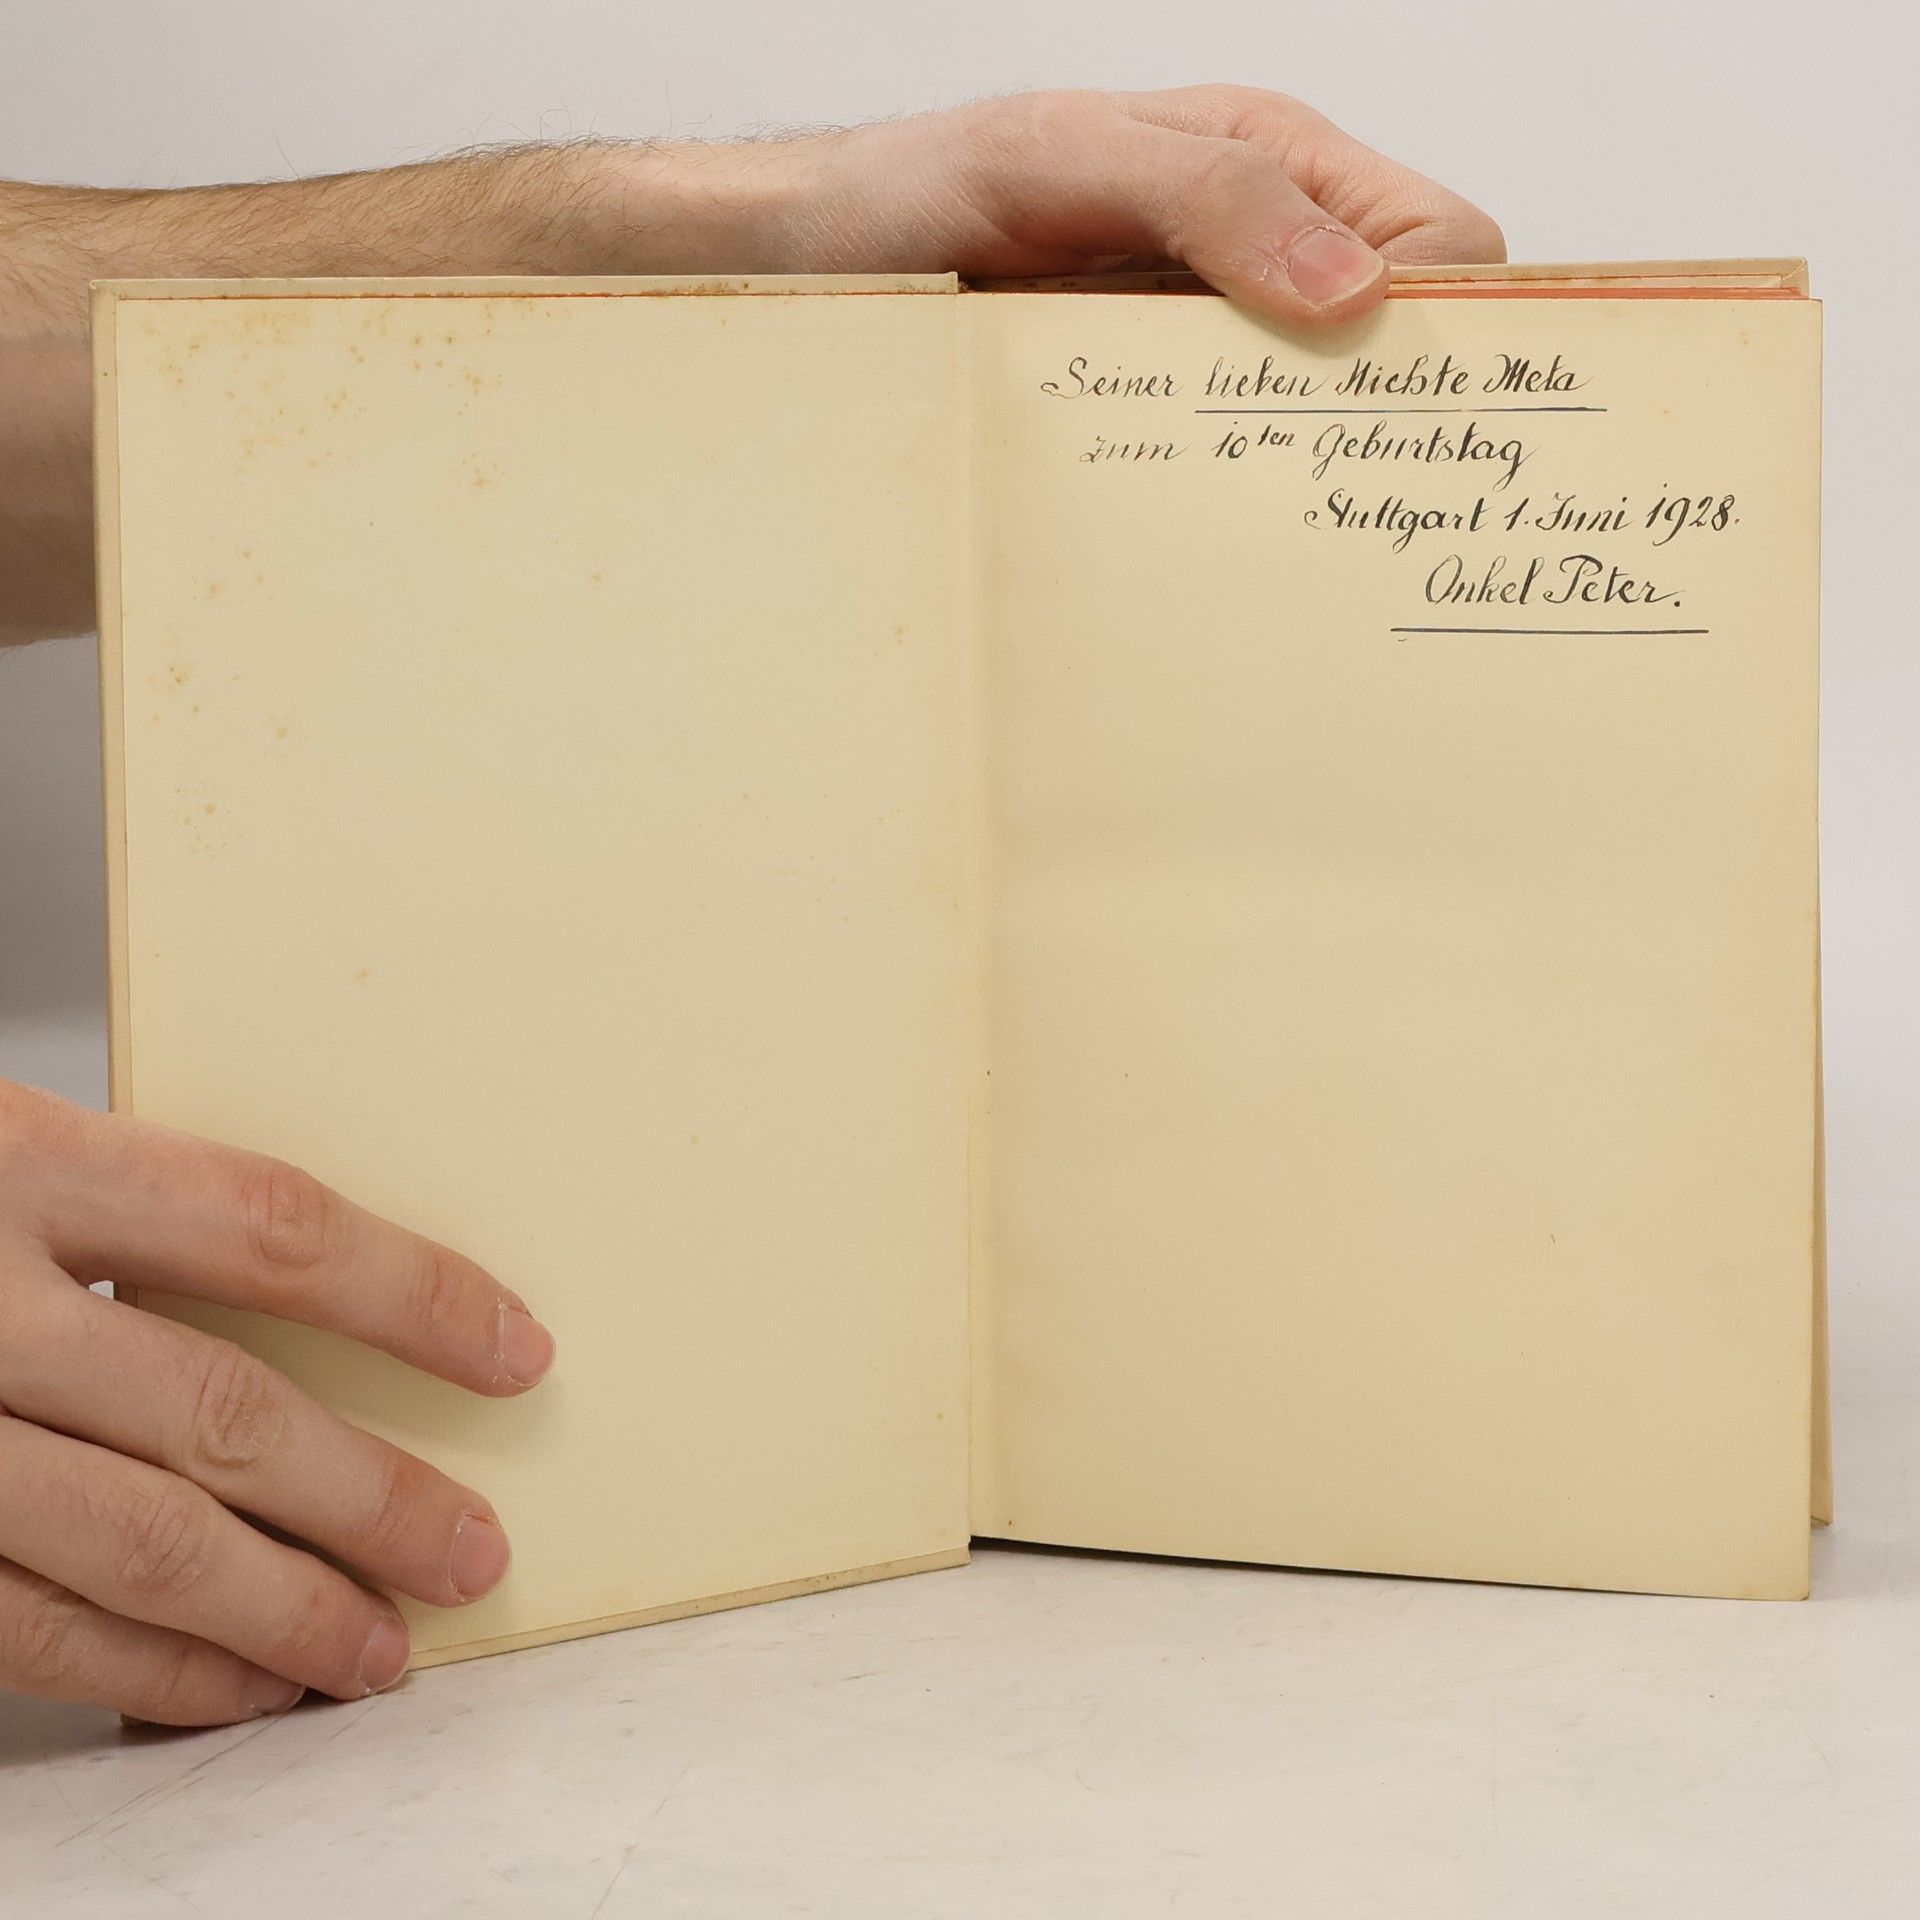 Seiner lieben Nichte Meta
zum 10ten Geburtstag
Stuttgart 1. Juni 1928.
Onkel Peter.